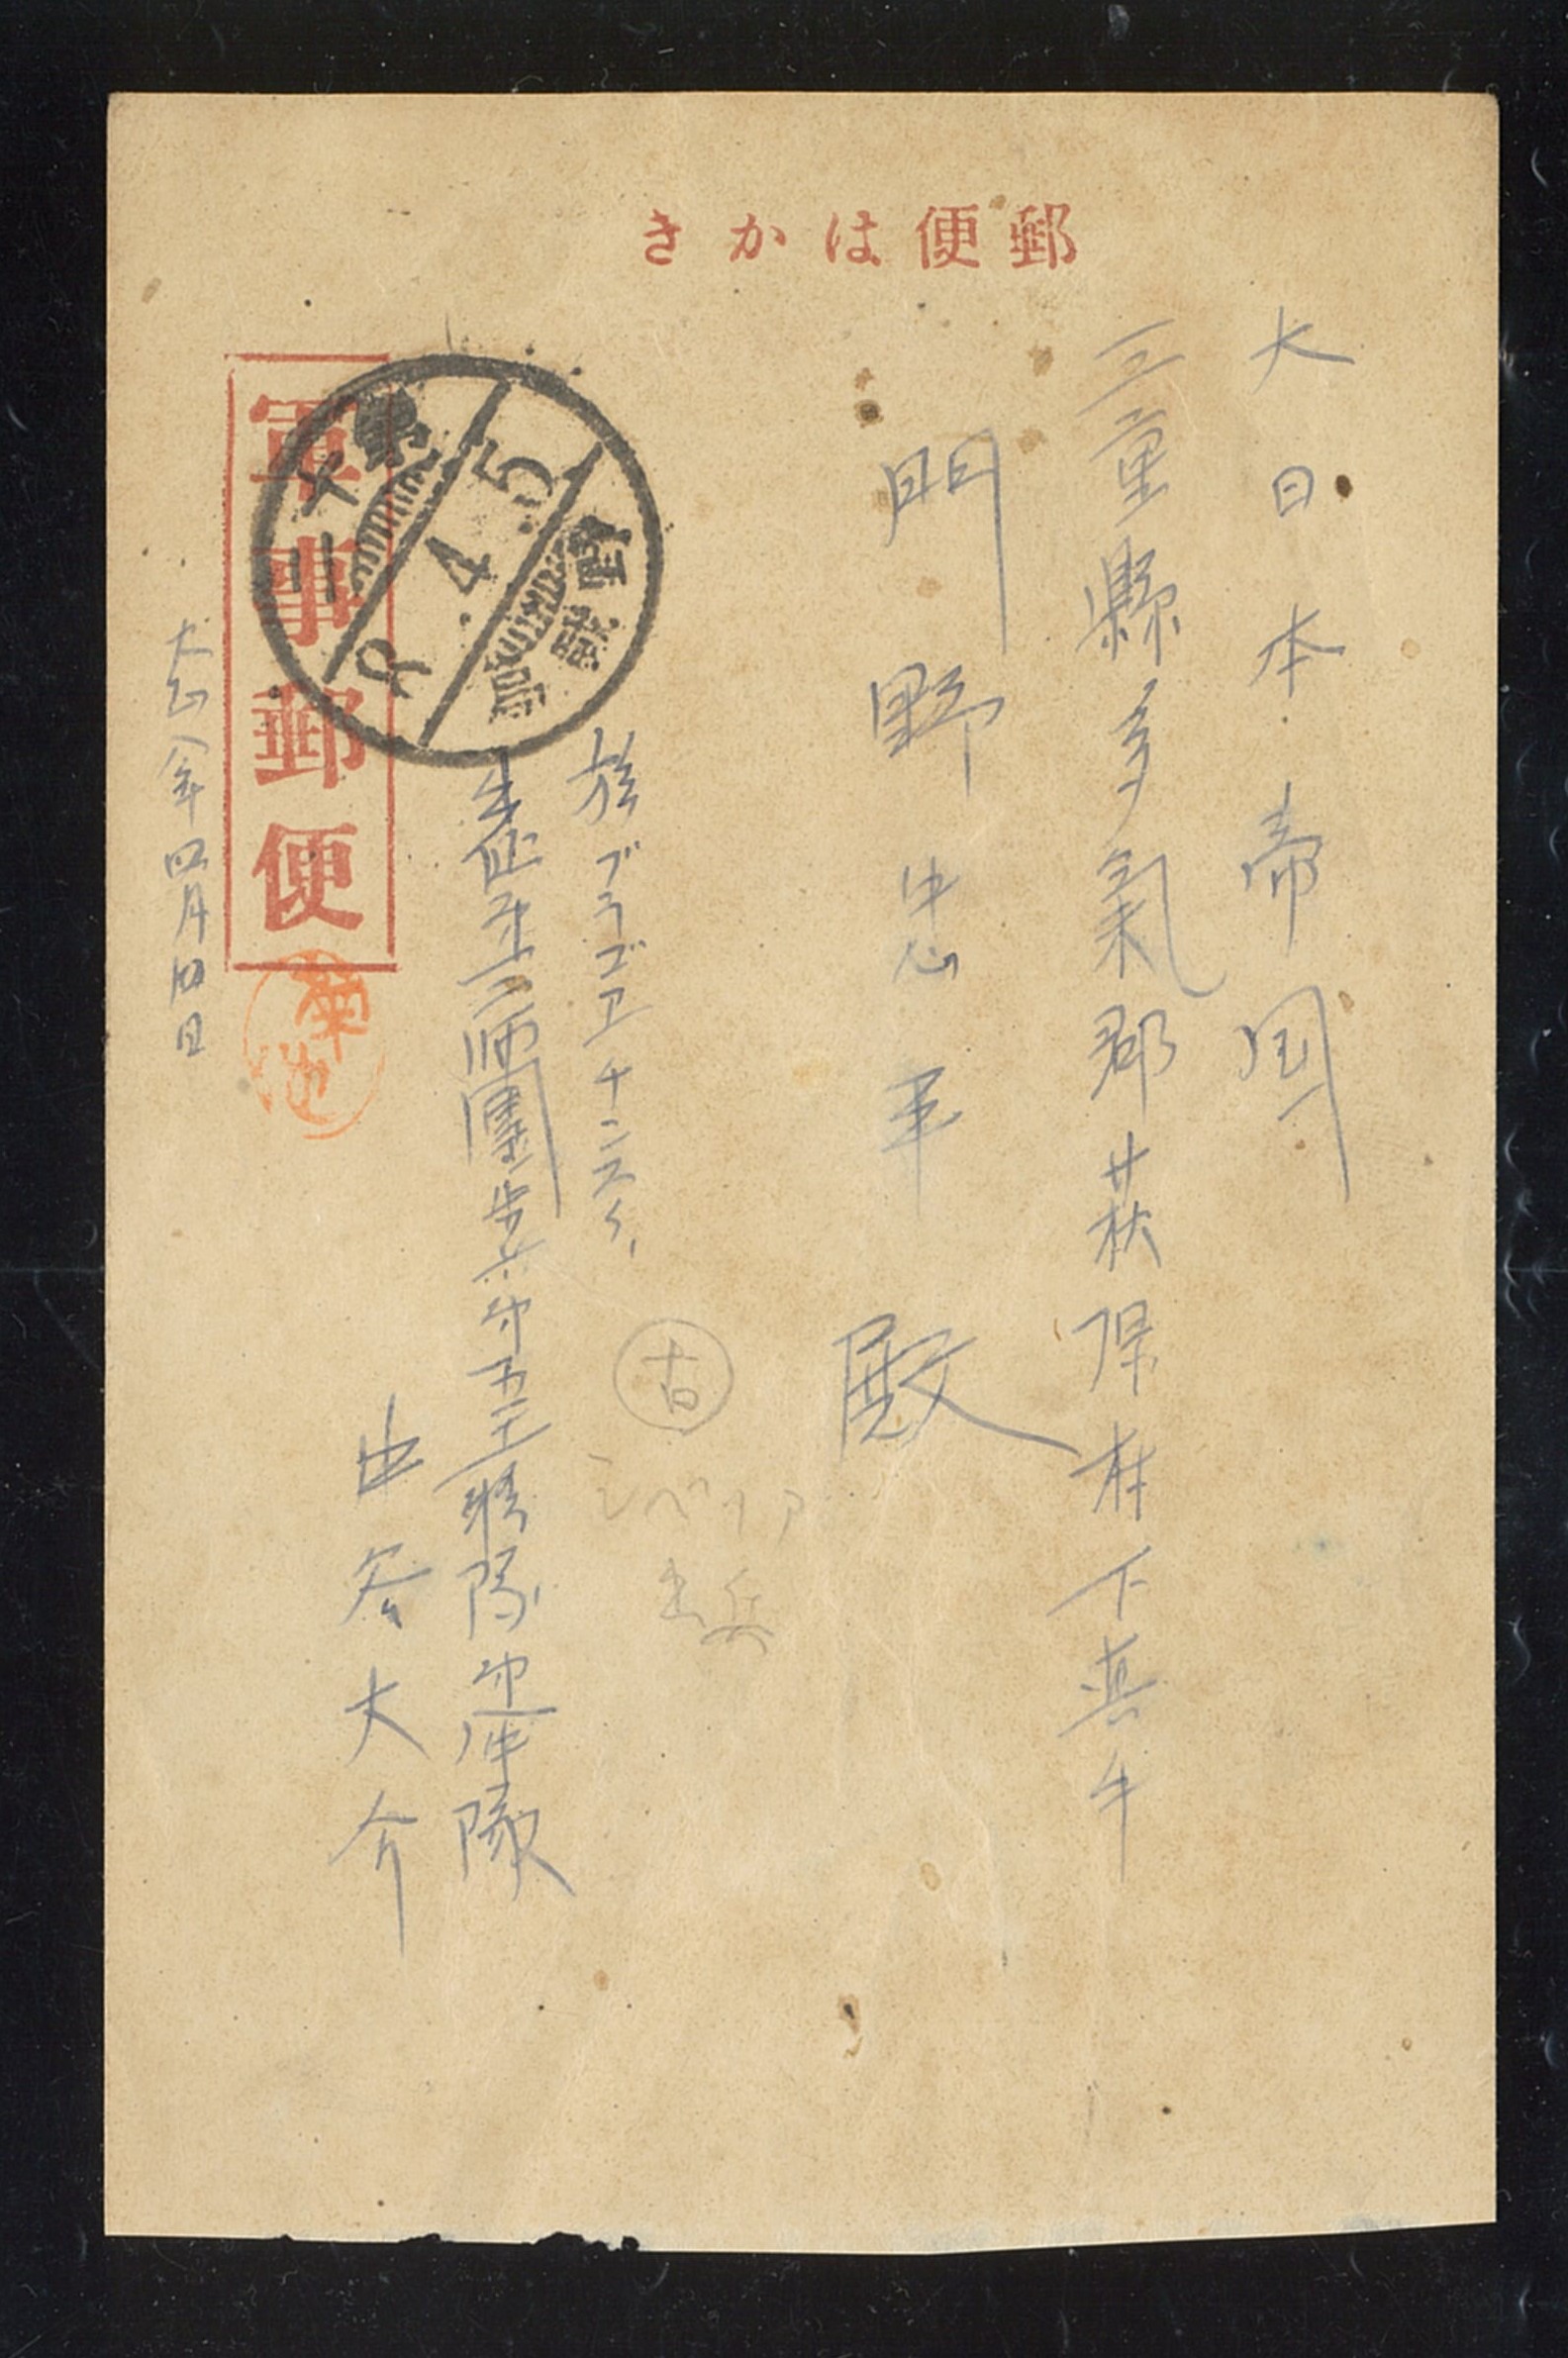 郵便はかき
大日本帝国
三重縣多氣郡萩原村下真手
門野忠平殿
於ブラゴエチンスク
出征第三師團歩兵第五十一聯隊第一中隊
中谷大介
軍事郵便
大正八年四月四日
8.4.5
野戰局
古
シベリア
出兵
菊池